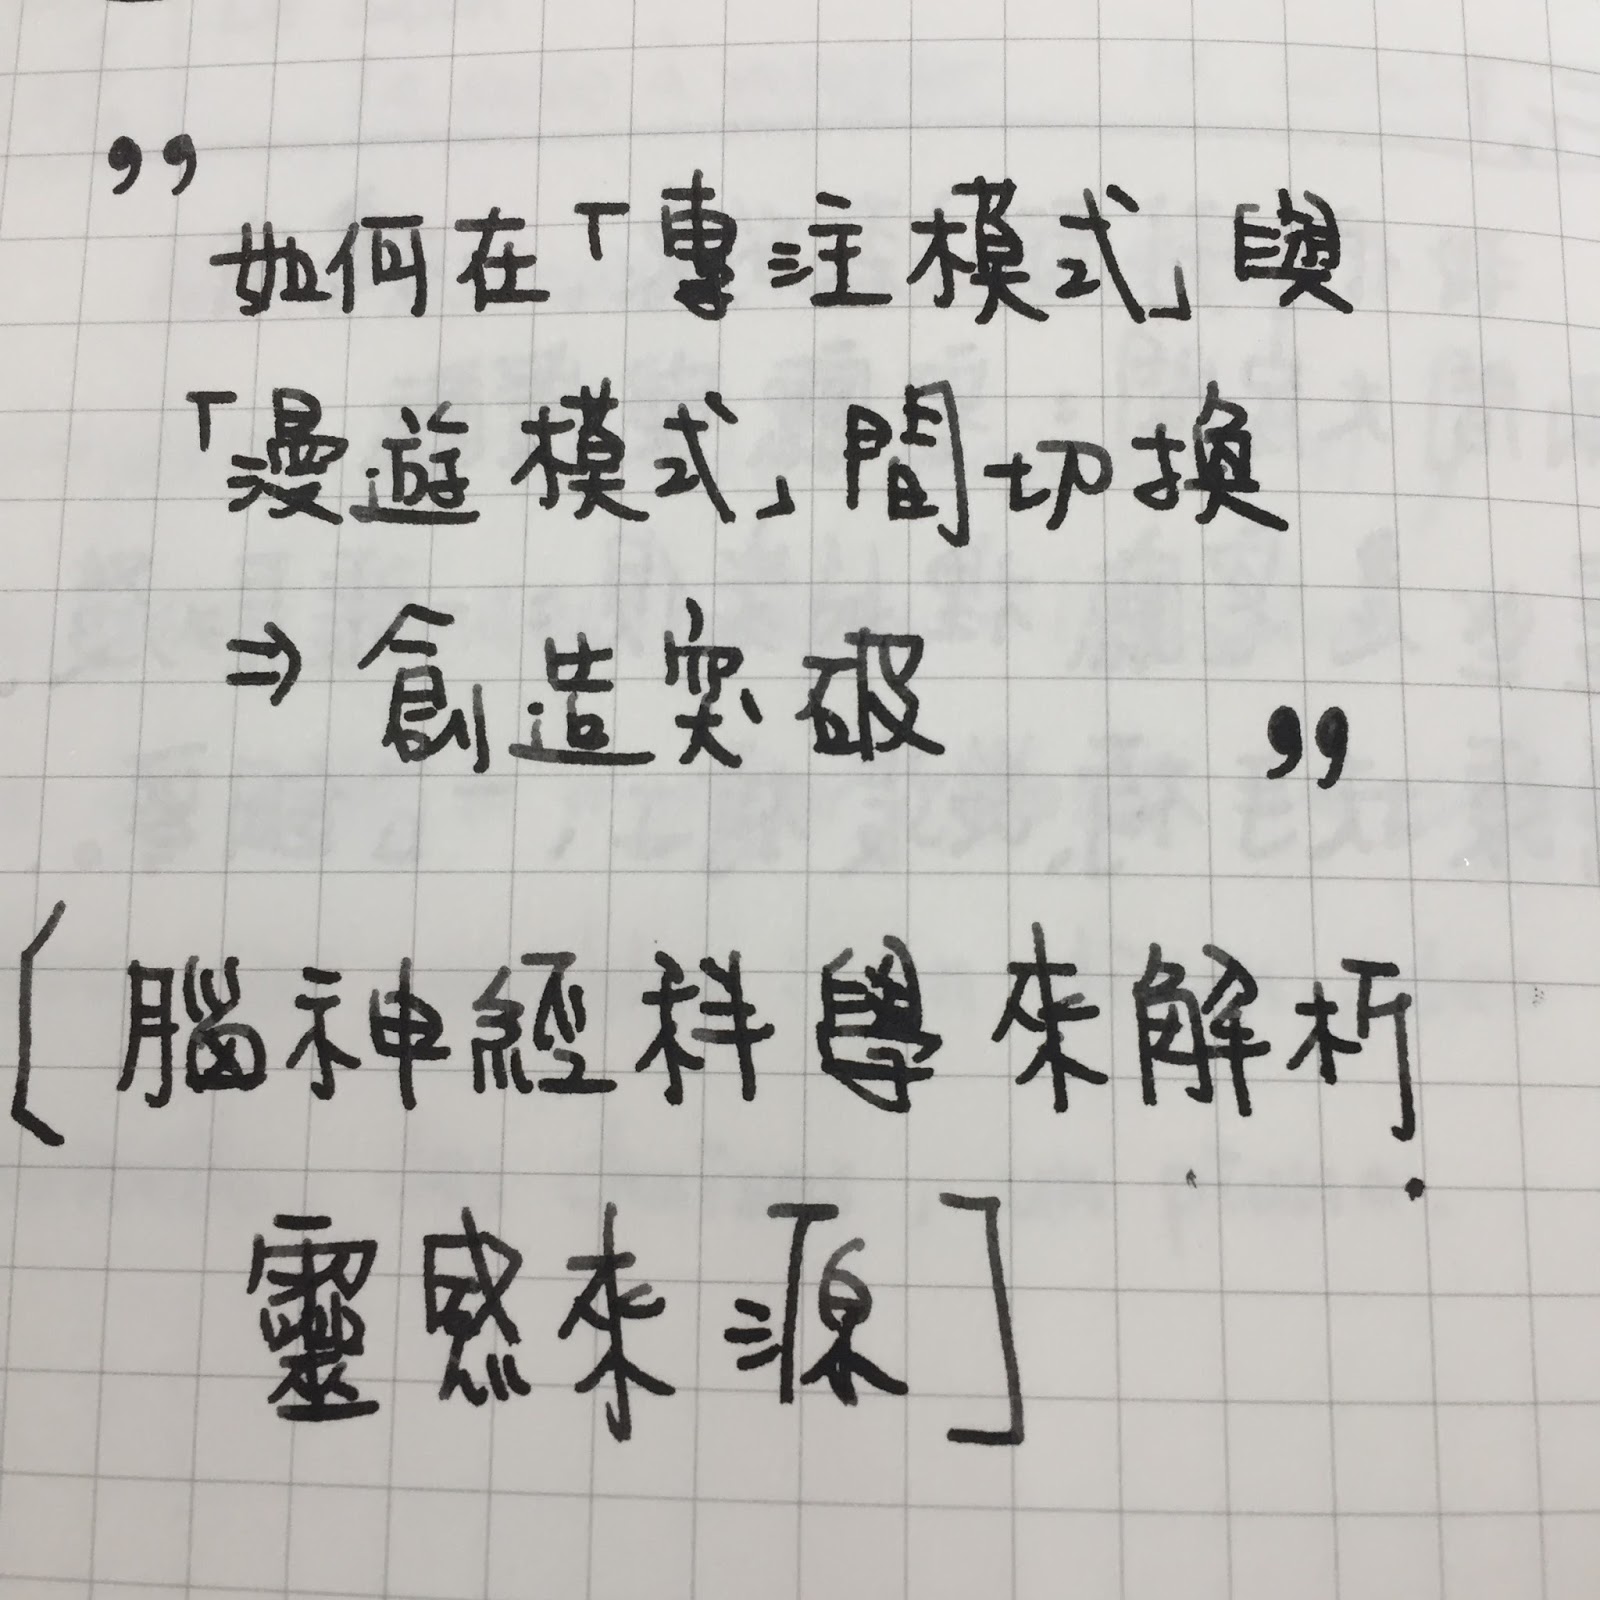 ”
如何在「專注模式」與
「漫遊模式」間切換
⇒ 創造突破
”
[腦神經科學來解析.
靈感來源]